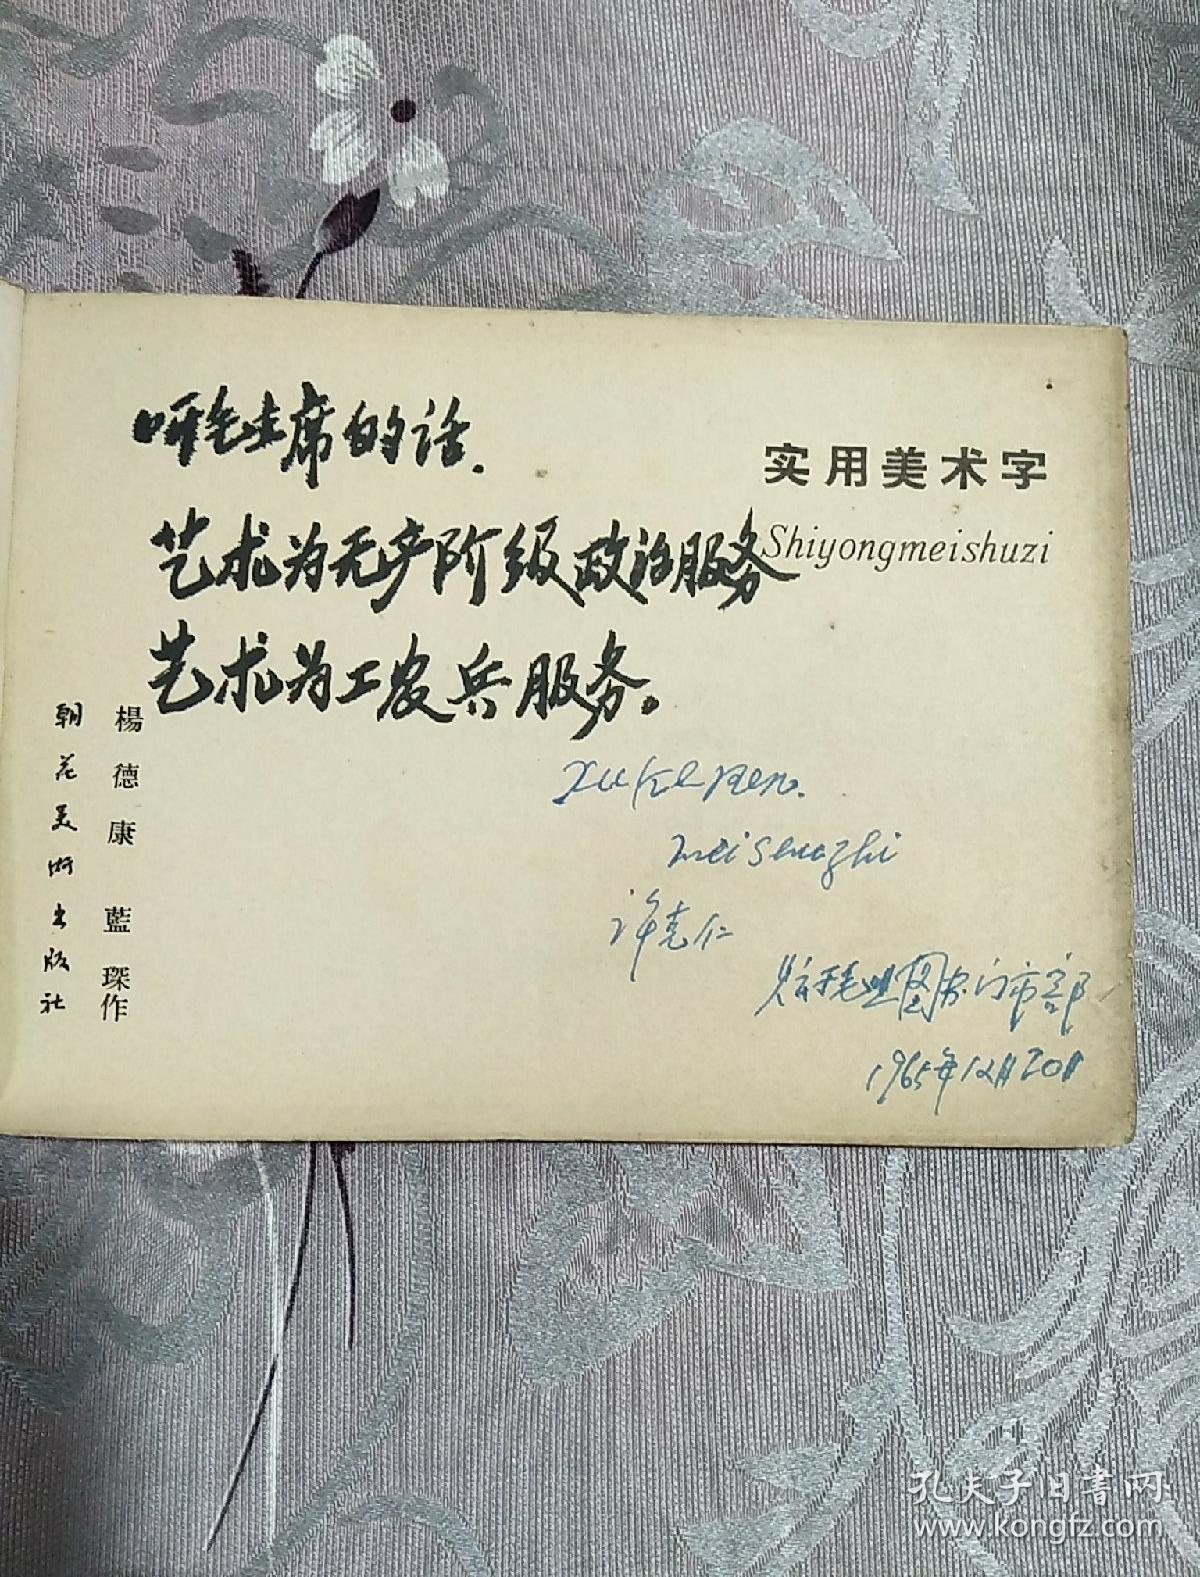 听毛主席的话.
艺术为无产阶级政治服务
艺术为工农兵服务。
实用美术字
Shiyongmeishuzi
楊德康 藍琛作
朝花美術出版社
Xu Ke Ren.
meishuzhi
许克仁
图书门市部
1965年12月20日
孔夫子旧書网
www.kongfz.com